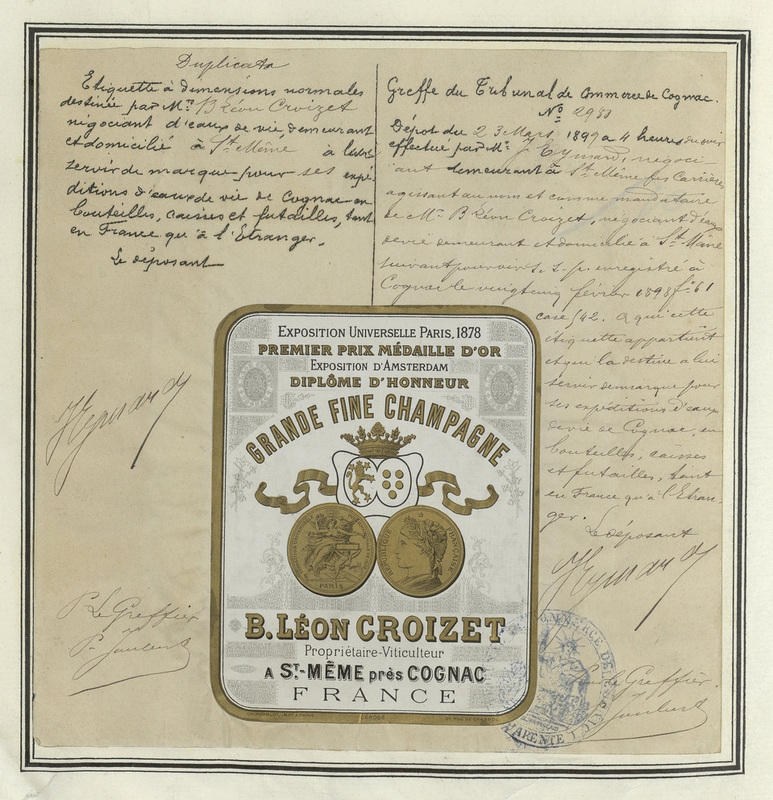 Duplicata
Etiquette à dimensions normales
destinée par Mr. B Léon Croizet
négociant d'eaux de vie, demeurant
et domicilié à St. Même à lui
servir de marque pour ses expé-
ditions d'eaux de vie de Cognac en
bouteilles, caisses et futailles, tant
en France qu'à l'Etranger.
Le déposant
J Eymard
P. Le Greffier
Greffe du Tribunal de Commerce de Cognac.
No
Dépôt du 23 Mars 1899 à 4 heures du soir
effectué par Mr. J Eymard, négoci
ant demeurant à St. Même les Carrières
agissant au nom et comme mandataire
de Mr. B Léon Croizet, négociant d'eaux
de vie demeurant et domicilié à St. Même
suivant pouvoir s. s. p. enregistré à
Cognac le vingt cinq février 1898 fo. 61
case 142. a qui cette
étiquette appartient
et qui la destine à lui
servir de marque pour
ses expéditions d'eaux
de vie de Cognac, en
bouteilles, caisses
et futailles, tant
en France qu'à l'Etran-
ger.
Le déposant
J Eymard
Le Greffier.
EXPOSITION UNIVERSELLE PARIS, 1878
PREMIER PRIX MÉDAILLE D'OR
EXPOSITION D'AMSTERDAM
DIPLÔME D'HONNEUR
GRANDE FINE CHAMPAGNE
PARIS
RÉPUBLIQUE FRANÇAISE
B. LÉON CROIZET
Propriétaire-Viticulteur
A ST.-MÊME près COGNAC
FRANCE
DÉPOSÉ
COMMERCE DE
CHARENTE